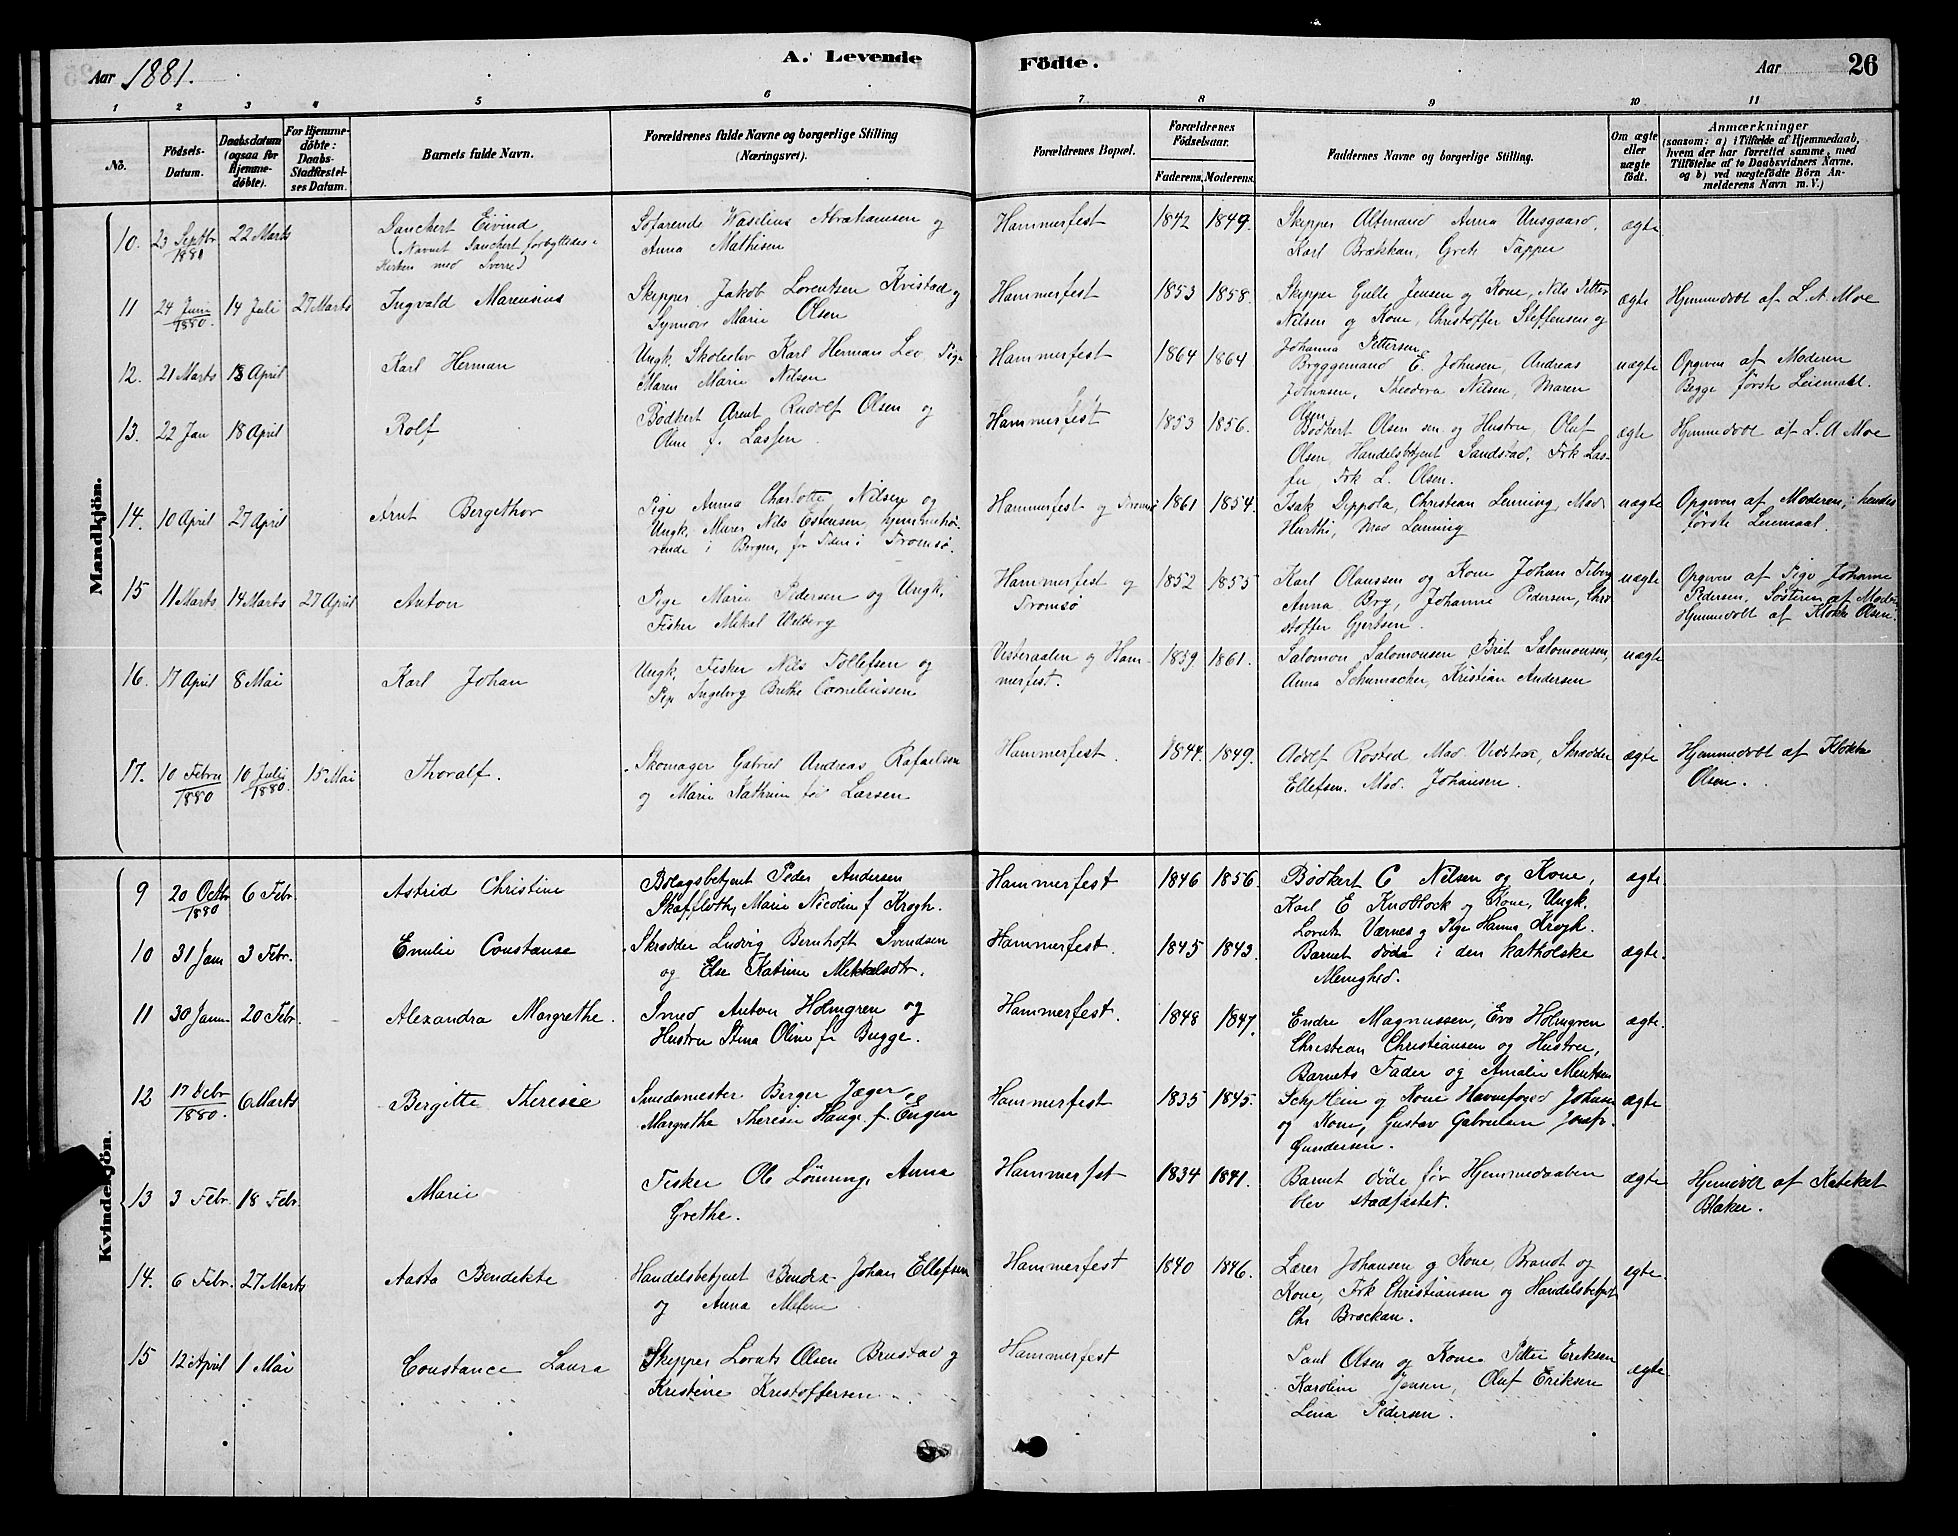 Aar 1881.
A. Levende Födte.
Aar 26
1 2 3 4 5 6 7 8 9 10 11
No.
Födsels-Datum.
Daabsdatum (ogsaa for Hjemmedöbte).
For Hjemmedöbte: Daabs-Stadfæstelses Datum.
Barnets fulde Navn.
Forældrenes fulde Navne og borgerlige Stilling (Næringsvei).
Forældrenes Bopæl.
Forældrenes Födselsaar.
Faderens. Moderens.
Faddernes Navne og borgerlige Stilling.
Om ægte eller uægte födt.
Anmærkninger
(saasom: a) i Tilfælde af Hjemmedaab, hvem der har forrettet samme, med Tilföielse af to Daabsvidners Navne, og b) ved uægtefödte Börn Anmelderens Navn m. V.)
Mandkjön.
10. 23 Septbr 1880 22 Marts
Danchert Eivind
(Navnet Danchert forbyttedes i
Kirken med Sverre)
Söfarende Wasilius Abrahamsen og
Anna Mathisen
Hammerfest 1842 1849.
Skipper Altmand Anna Unsgaard,
Karl Brækkan, Grete Tapper
ægte
11 24 Juni 1880. 14 Juli 27 Marts
Ingvald Marensius
Skipper Jakob Lorentsen Kvistad og
Synnöv Marie Olsen
Hammerfest 1853 1858.
Skipper Gulle Jensen og Kone, Nils Petter
Nilsen og Kone, Christoffer Steffensen og
Johanna Pettersen
ægte
Hjemmedöbt af L. A. Moe
12. 21 Marts 18 April
Karl Herman
Ungk. Karl Herman Lov, Pige
Maren Marie Nilsen
Hammerfest 1864 1864
Bryggemand E. Johnsen, Andreas
Johnsen, Theodora Nilsen, Maren
Olsen
uægte
Opgiven af Moderen
Begge förste Leiemaal.
13. 22 Jan 18 April
Rolf
Bödkert Arent Rudolf Olsen og
Oline f. Lassen.
Hammerfest 1853 1856.
Bödkert Olsen sen. og Hustru, Oluf
Olsen, Handelsbetjent Sandstad, Frk Las-
sen, Frk L. Olsen.
ægte
Hjemmedöbt af L. A Moe
14. 10 April 27 April
Arnt Bergethor
Pige Anna Charlotte Nilsen og
Ungk. Murer Nils Estensen, hjemmehö-
rende i Bergen, for Tiden i Tromsö.
Hammerfest og Tromsö 1861 1854.
Isak Dippola, Christian Lunning, Mad
Hurthi, Mad Lunning
uægte
Opgiven af Moderen, hendes
förste Leiemaal.
15 11 Marts 14 Marts 27 April
Anton
Pige Marie Pedersen og Ungk.
Fisker Mikal Welberg
Hammerfest og
Tromsö
1852 1855
Karl Olaussen og Kone Johan
Anna Brg, Johanne Pedersen, Chri
stoffer Gjertsen.
uægte
Opgiven af Pige Johanne
Pedersen, Söster af Moder
Hjemmedöbt af Klokker Olsen.
16. 17 April 8 Mai
Karl Johan
Ungk. Fisker Nils Tollefsen og
Pige Ingeborg Brithe Corneliussen
Vesteraalen og Ham-
merfest.
1839 1861.
Salomon Salomonsen, Brit Salomonsen,
Anna Schumacher, Kristian Andersen
uægte
17. 10 Febru 1880 10 Juli 1880. 15 Mai
Thoralf.
Skomager Gabriel Andreas Rafaelsen
og Marie Kathrine föd Larsen
Hammerfest. 1844. 1849.
Adolf Rostad Mad Skrædder
Ellefsen. Mad. Johansen.
ægte
Hjemmedöbt af Klokker
Olsen.
Kvindekjön.
9 20 Octbr 1880 6 Febr.
Astrid Christine
Bolagsbetjent Peder Andersen
Skafloth, Marie Nicoline f Krogh.
Hammerfest 1846 1856.
Bödkert C Nilsen og Kone,
Karl E Knoblock og Kone, Ungk.
Lorents Værnes og Pige Hanna Krogh.
ægte
10 31 Jan 3 Febr.
Emilie Constanse
Skrædder Ludvig Bernhoft Svendsen
og Else Katrine Mikkelsdtr.
Hammerfest. 1845 1843.
Barnet döbt i den katholske
Menighed.
ægte.
11 30 Janu 20 Febr.
Alexandra Margrethe.
Smed Anton Holmgren og
Hustru Stina Oline f. Bugge.
Hammerfest. 1848 1847.
Endre Magnussen, Eva Holmgren
Christian Christiansen og Hustru,
Barnets Fader og Amalie Mentsen
ægte.
12 17 Febr 1880. 6 Marts
Bergitte Theresie
Smedemester Berger Jæger,
Margrethe Theresie Hauge f. Engen
Hammerfest 1835 1845.
og Kone Havnefoged Johnsen
og Kone, Gustav Gabrielsen Josef
Gundersen.
ægte
13 3 Febr. 18 Febr.
Marie
Fisker Ole Lönning, Anna
Grethe.
Hammerfest 1834 1841.
Barnet döde för Hjemmedaaben
blev stadfæstet.
ægte
Hjemdöbt af Kateket
Blaker.
14. 6 Febr. 27 Marts
Aasta Bendikte
Handelsbetjent Bendix Johan Ellefsen
og Anna Melene
Hammerfest 1840 1846.
Lærer Johansen og Kone, Brandt og
Kone, Frk Christiansen og Handelsbetjent
Chr Brækkan.
ægte.
15 12 April 1 Mai
Constance Laura
Skipper Lorents Olsen Brustad og
Kristine Kristoffersen
Hammerfest
Paul Olsen og Kone Petter Eriksen
Karoline Jensen, Oluf Eriksen
Lina Pedersen.
ægte